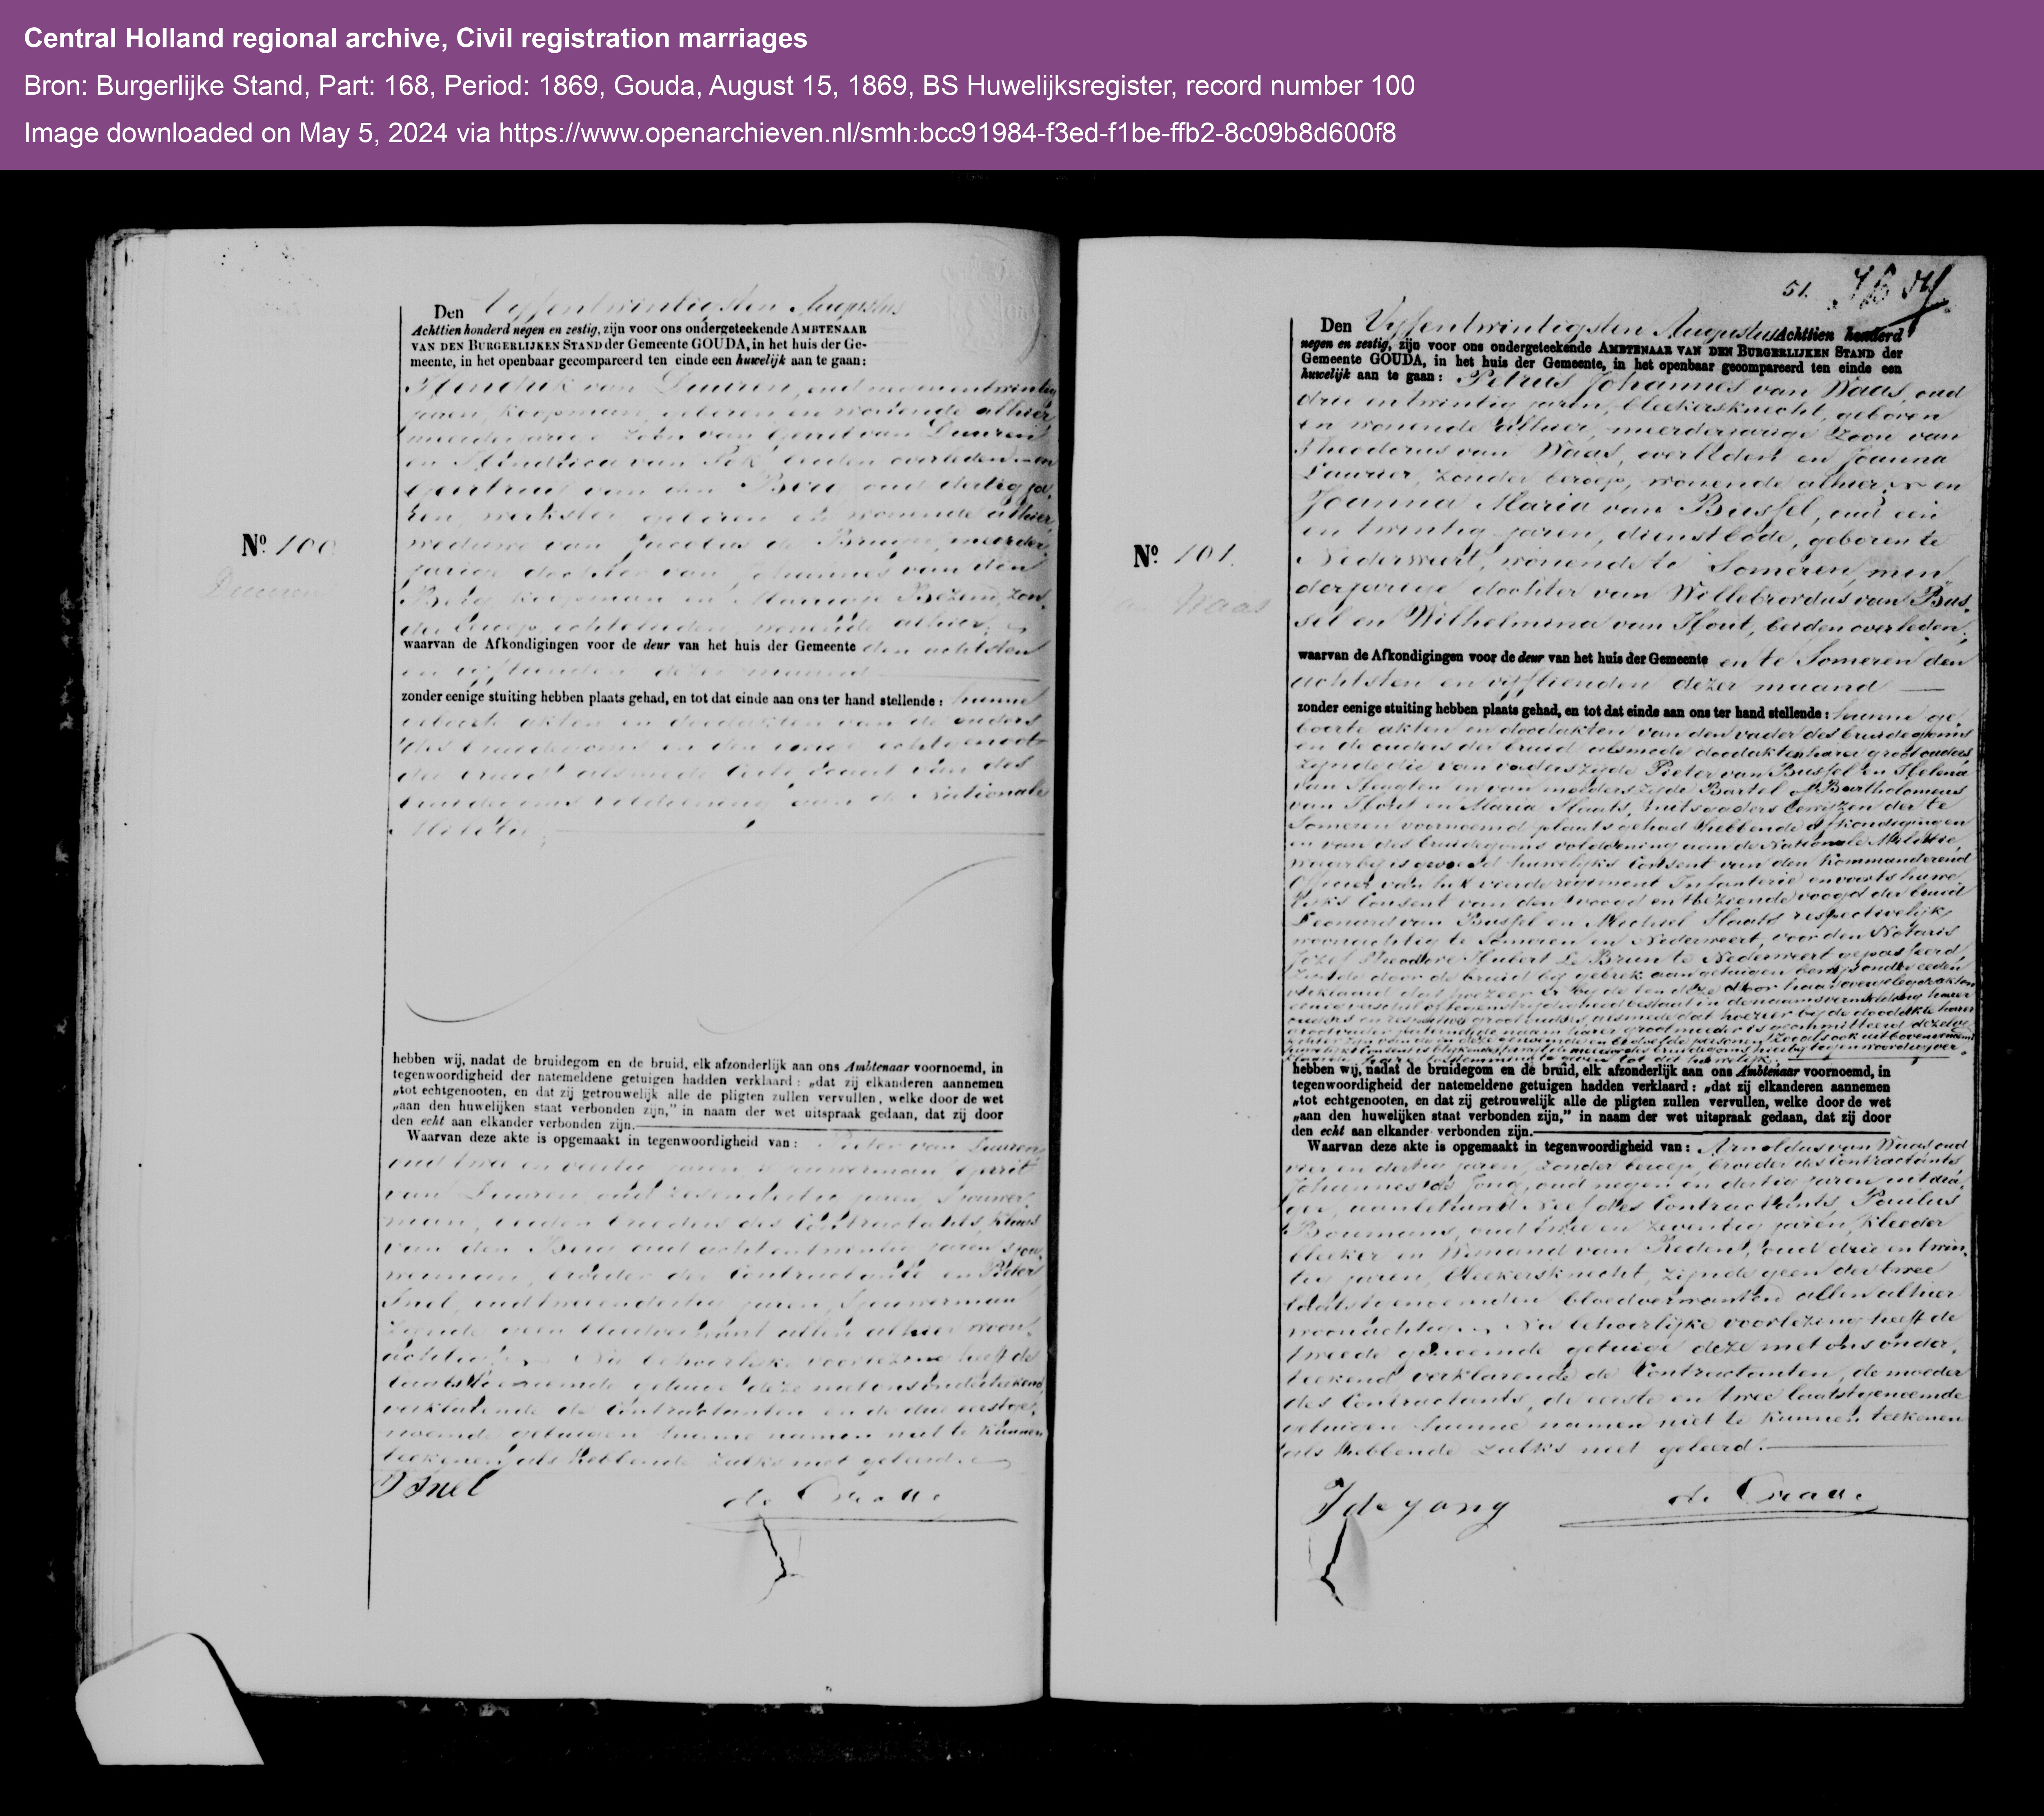 Central Holland regional archive, Civil registration marriages
Bron: Burgerlijke Stand, Part: 168, Period: 1869, Gouda, August 15, 1869, BS Huwelijksregister, record number 100
Image downloaded on May 5, 2024 via https://www.openarchieven.nl/smh:bcc91984-f3ed-f1be-ffb2-8c09b8d600f8
Den Vyfentwintigsten Augustus
Achttien honderd negen en zestig, zijn voor ons ondergeteekende AMBTENAAR
VAN DEN BURGERLIJKEN STAND der Gemeente GOUDA, in het huis der Ge-
meente, in het openbaar gecompareerd ten einde een huwelijk aan te gaan:
Hendrik van Duuren, oud negenentwintig
jaren, koopman, geboren en wonende alhier
meerderjarige zoon van Gerrit van Duuren
en Hendrica van Pek, beiden overleden en
Geertrui van den Berg oud dertig ja-
ren, werkster geboren en wonende alhier,
weduwe van Jacobus de Bruijn, meerder-
jarige dochter van Johannes van den
Berg koopman en Marrigje Bezem, zon-
der beroep, echtelieden, wonende alhier;
No. 100
Duuren
waarvan de Afkondigingen voor de deur van het huis der Gemeente den achtsten
en vijftienden dezer maand
zonder eenige stuiting hebben plaats gehad, en tot dat einde aan ons ter hand stellende: hunne
geboorte akten en doodakten van de ouders
des bruidegoms en den vorige echtgenoot
der bruid alsmede certificaat van des
bruidegoms voldoening aan de Nationale
Militie;
hebben wij, nadat de bruidegom en de bruid, elk afzonderlijk aan ons Ambtenaar voornoemd, in
tegenwoordigheid der natemeldene getuigen hadden verklaard: „dat zij elkanderen aannemen
„tot echtgenooten, en dat zij getrouwelijk alle de pligten zullen vervullen, welke door de wet
„aan den huwelijken staat verbonden zijn,” in naam der wet uitspraak gedaan, dat zij door
den echt aan elkander verbonden zijn.
Waarvan deze akte is opgemaakt in tegenwoordigheid van: Pieter van Duuren
oud twee en veertig jaren, sjouwerman, Gerrit
van Duuren, oud zesendertig jaren, sjouwer-
man, beiden broeders des Contractants, Klaas
van den Berg oud achtentwintig jaren sjou-
werman, broeder der Contractante en Pieter
Snel, oud tweeendertig jaren, Sjouwerman
zijnde geen bloedverwant allen alhier woon-
achtig. Na behoorlijke voorlezing heeft de
laatstgenoemde getuige deze met ons onderteekend,
verklarende de Contractanten en de drie eerstge-
noemde getuigen hunne namen niet te kunnen
teekenen als hebbende zulks niet geleerd.
P Snel
de Graaf
51.
Den Vyfentwintigsten Augustus Achttien honderd
negen en zestig, zijn voor ons ondergeteekende AMBTENAAR VAN DEN BURGERLIJKEN STAND der
Gemeente GOUDA, in het huis der Gemeente, in het openbaar gecompareerd ten einde een
huwelijk aan te gaan: Petrus Johannes van Waas, oud
drie en twintig jaren, bleekersknecht, geboren
en wonende alhier, meerderjarige zoon van
Theodorus van Waas, overleden en Joanna
Laurier, zonder beroep, wonende alhier, en
Joanna Maria van Bussel, oud een
en twintig jaren, dienstbode, geboren te
Nederweert, wonende te Someren, min
derjarige dochter van Willebrordus van Bus-
sel en Wilhelmina van Hout, beiden overleden;
No. 101.
van Waas
waarvan de Afkondigingen voor de deur van het huis der Gemeente en te Someren den
achtsten en vijftienden dezer maand
zonder eenige stuiting hebben plaats gehad, en tot dat einde aan ons ter hand stellende: hunne ge-
boorte akten en doodakten van den vader des bruidegoms
en de ouders der bruid alsmede doodakten harer grootouders
zijnde die van vaderszijde Pieter van Bussel en Helena
van Haagten en van moederszijde Bartel of Bartholomeus
van Hout en Maria Slaats, mitsgaders bewijzen der te
Someren voornoemd plaats gehad hebbende afkondigingen
en van des bruidegoms voldoening aan de Nationale Militie,
waarbij is gevoegd huwelijks Consent van den Kommanderend
Officier van het vierde regiment Infanterie en voorts huwe-
lijks Consent van den voogd en toeziende voogd der bruid
Leonard van Bussel en Michiel Slaats respectivelijk
woonachtig te Someren en Nederweert, voor den Notaris
Jozef Theodore Hubert Le Brun te Nederweert gepasseerd,
zijnde door de bruid bij gebrek aan getuigen
hebben wij, nadat de bruidegom en de bruid, elk afzonderlijk aan ons Ambtenaar voornoemd, in
tegenwoordigheid der natemeldene getuigen hadden verklaard: „dat zij elkanderen aannemen
„tot echtgenooten, en dat zij getrouwelijk alle de pligten zullen vervullen, welke door de wet
„aan den huwelijken staat verbonden zijn,” in naam der wet uitspraak gedaan, dat zij door
den echt aan elkander verbonden zijn.
Waarvan deze akte is opgemaakt in tegenwoordigheid van: Arnoldus van Waas oud
vier en dertig jaren, zonder beroep, broeder des Contractants,
Johannes de Jong, oud negen en dertig jaren uitdra-
ger, aanbehuwd Neef des Contractants, Paulus
Boumans, oud twee en zeventig jaren, kleeder
bleeker en Wijnand van Reden, oud drie en twin-
tig jaren, bleekersknecht, zijnde geen der twee
laatstgenoemden bloedverwanten allen alhier
woonachtig. Na behoorlijke voorlezing heeft de
tweede genoemde getuige deze met ons onder-
teekend, verklarende de Contractanten, de moeder
des Contractants, de eerste en twee laatstgenoemde
getuigen hunne namen niet te kunnen teekenen
als hebbende zulks niet geleerd.
J de Jong
de Graaf